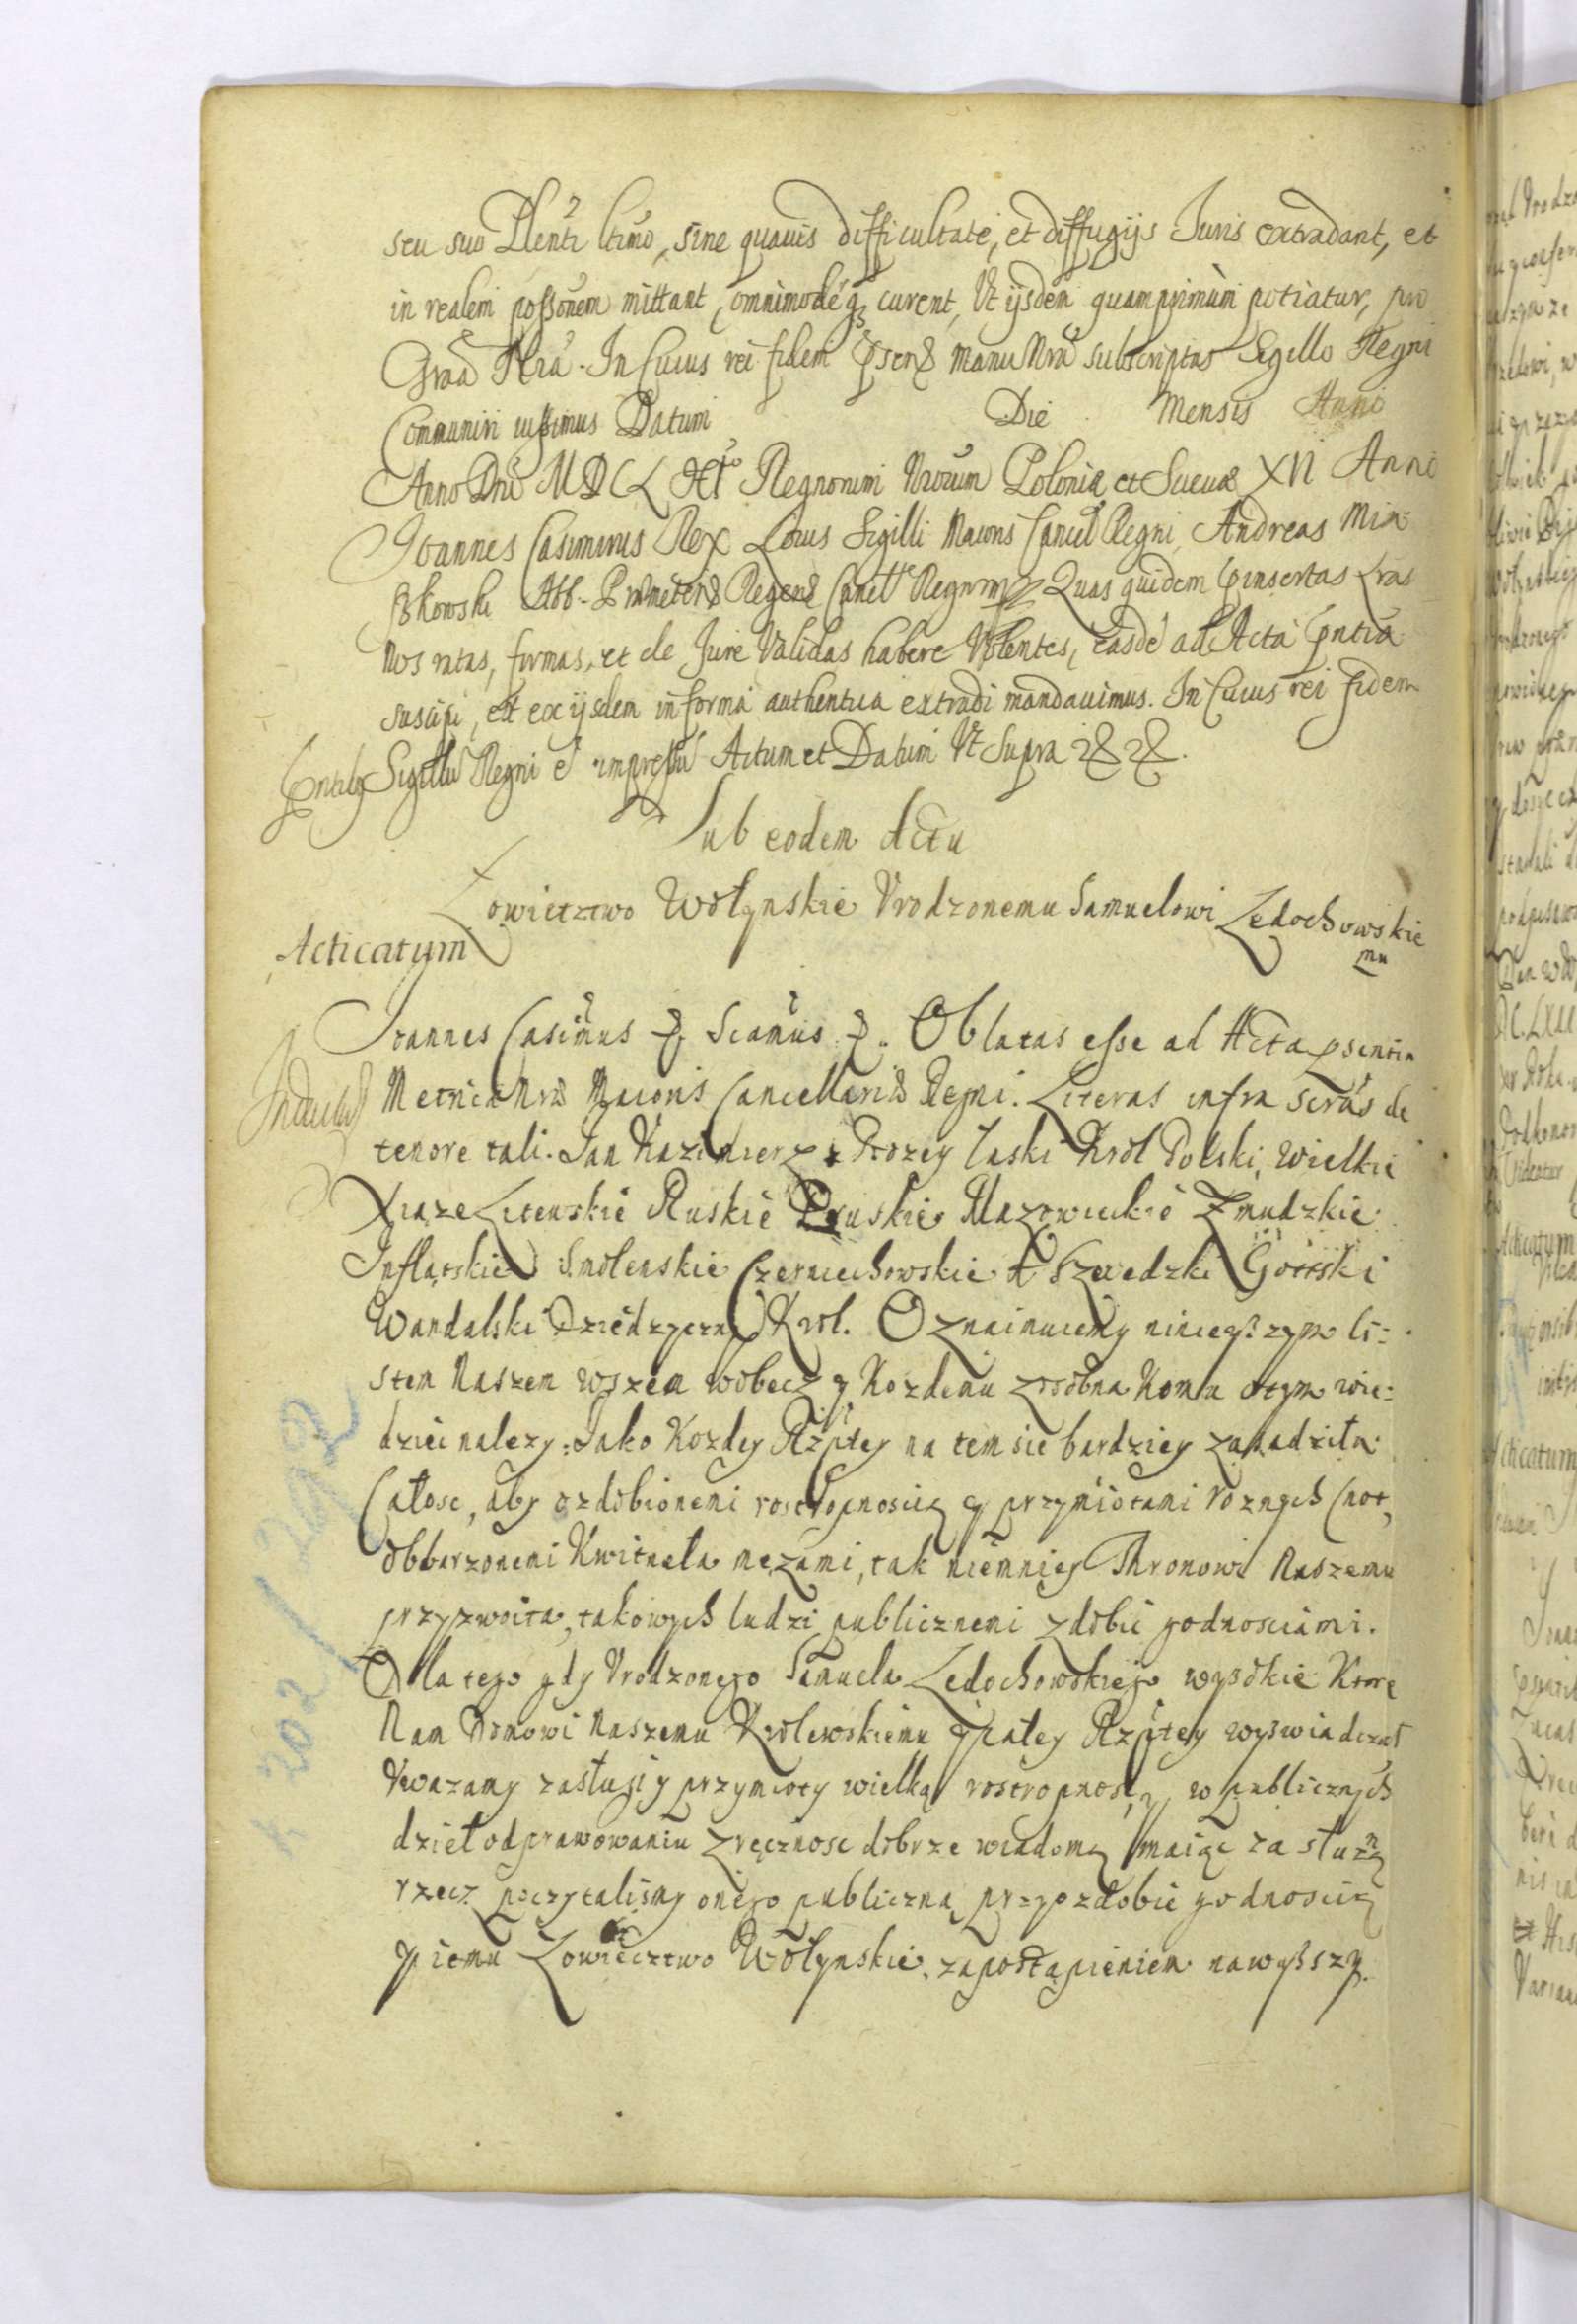 seu suo Plenti ltimo, sine quavis difficultate, et diffugijs Juris extradant, et
in realem possonem mittant, omnimodéq curent, Vt ijsdem quamprimùm potiatur, pro
Graã Nrã. In Cuius rei fidem pntes manu Nrã subscriptas Sigillo Regni
Communiri iussimus Datum Die Mensis Anno
Anno Dni MDCL Regnorum Nrorum Poloniæ et Sueciæ XII Anno
Joannes Casimirus Rex Locus Sigilli Maioris Cancel Regni, Andreas Mia
skowski Abb. Præmeten Regens Canclle Regnimp Quas quidem pinsertas Lras
Nos ratas, firmas, et de Jure Validas habere Volentes, easdē ad Acta pntia
suscipi, et ex ijsdem in forma authentica extradi mandavimus. In Cuius rei fidem
pntibs Sigillū Regni ē impressū Actum et Datum Vt Supra
Sub eodem Actu
Łowieztwo Wołynskie Vrodzonemu Samuelowi Ledochowskie
mu
Acticatum
Joannes Casimus Scamus Oblatas esse ad Acta psentia
Metricæ Nræ Maioris Cancellariæ Regni. Literas infra scrās de
Induct
tenore tali. Jan Kazimierz z Bozey Łaski Krol Polski, Wielkie
Xiaze Litewskie Ruskie Pruskie Mazowieckie Zmudzkie
Inflatskie Smolenskie Czerniechowskie A Szwedzki Gottski
Wandalski Dziedzyczny Krol. Oznaimuiemy ninieyszym li:
stem Naszem wszem wobecz y Kozdemu zosobna Komu otym wie:
dziei nalezy: Jako Kozdey Rzptey na tem sie bardziey zasadziła
Całosc, aby ozdobionemi rostropnoscią y przymiotami roznych Cnot,
obbarzonemi Kwitneła męzami, tak niemniey Thronowi Naszemu
przyzwoita, takowych ludzi publicznemi zdobic godnosciami.
Dla tego gdy Vrodzonego Samuela Ledochowskiego wysokie Ktore
Nam Domowi Naszemu Krolewskiemu y całey Rzptey wyswiadczał
Vwazamy zasługi y przymioty wielką rostropnosc, y w publicznych
dzieł odprawowaniu zręcznosc dobrze wiadomą maiąc za słuzną
rzecz poczytalismy onego publiczną przyozdobic godnoscią
y iemu Łowiecztwo Wołynskie, zapostąpieniem nawysszy
k 202